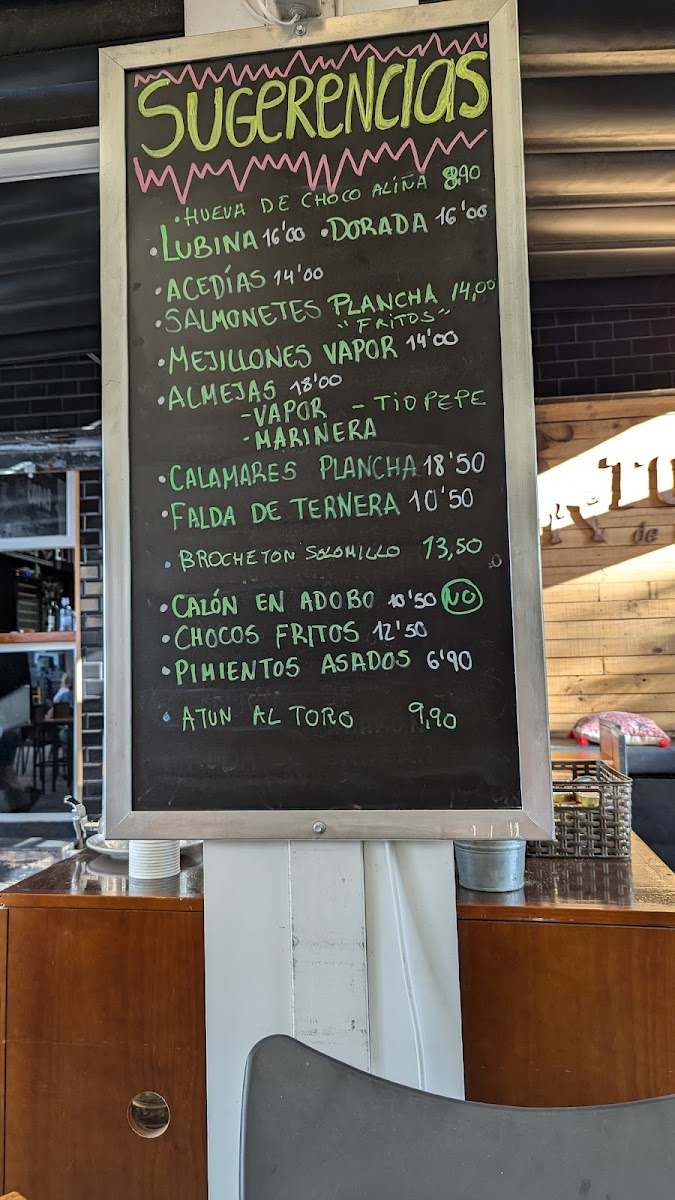 SUGERENCIAS
• HUEVA DE CHOCO ALIÑA 8,90
• LUBINA 16'00 • DORADA 16'00
• ACEDÍAS 14'00
• SALMONETES PLANCHA 14,00
"FRITOS"
• MEJILLONES VAPOR 14'00
• ALMEJAS 18'00
- VAPOR - TIO PEPE
- MARINERA
• CALAMARES PLANCHA 18'50
• FALDA DE TERNERA 10'50
• BROCHETON SOLOMILLO 13,50
• CAZÓN EN ADOBO 10'50 NO
• CHOCOS FRITOS 12'50
• PIMIENTOS ASADOS 6'90
• ATUN AL TORO 9,90
de